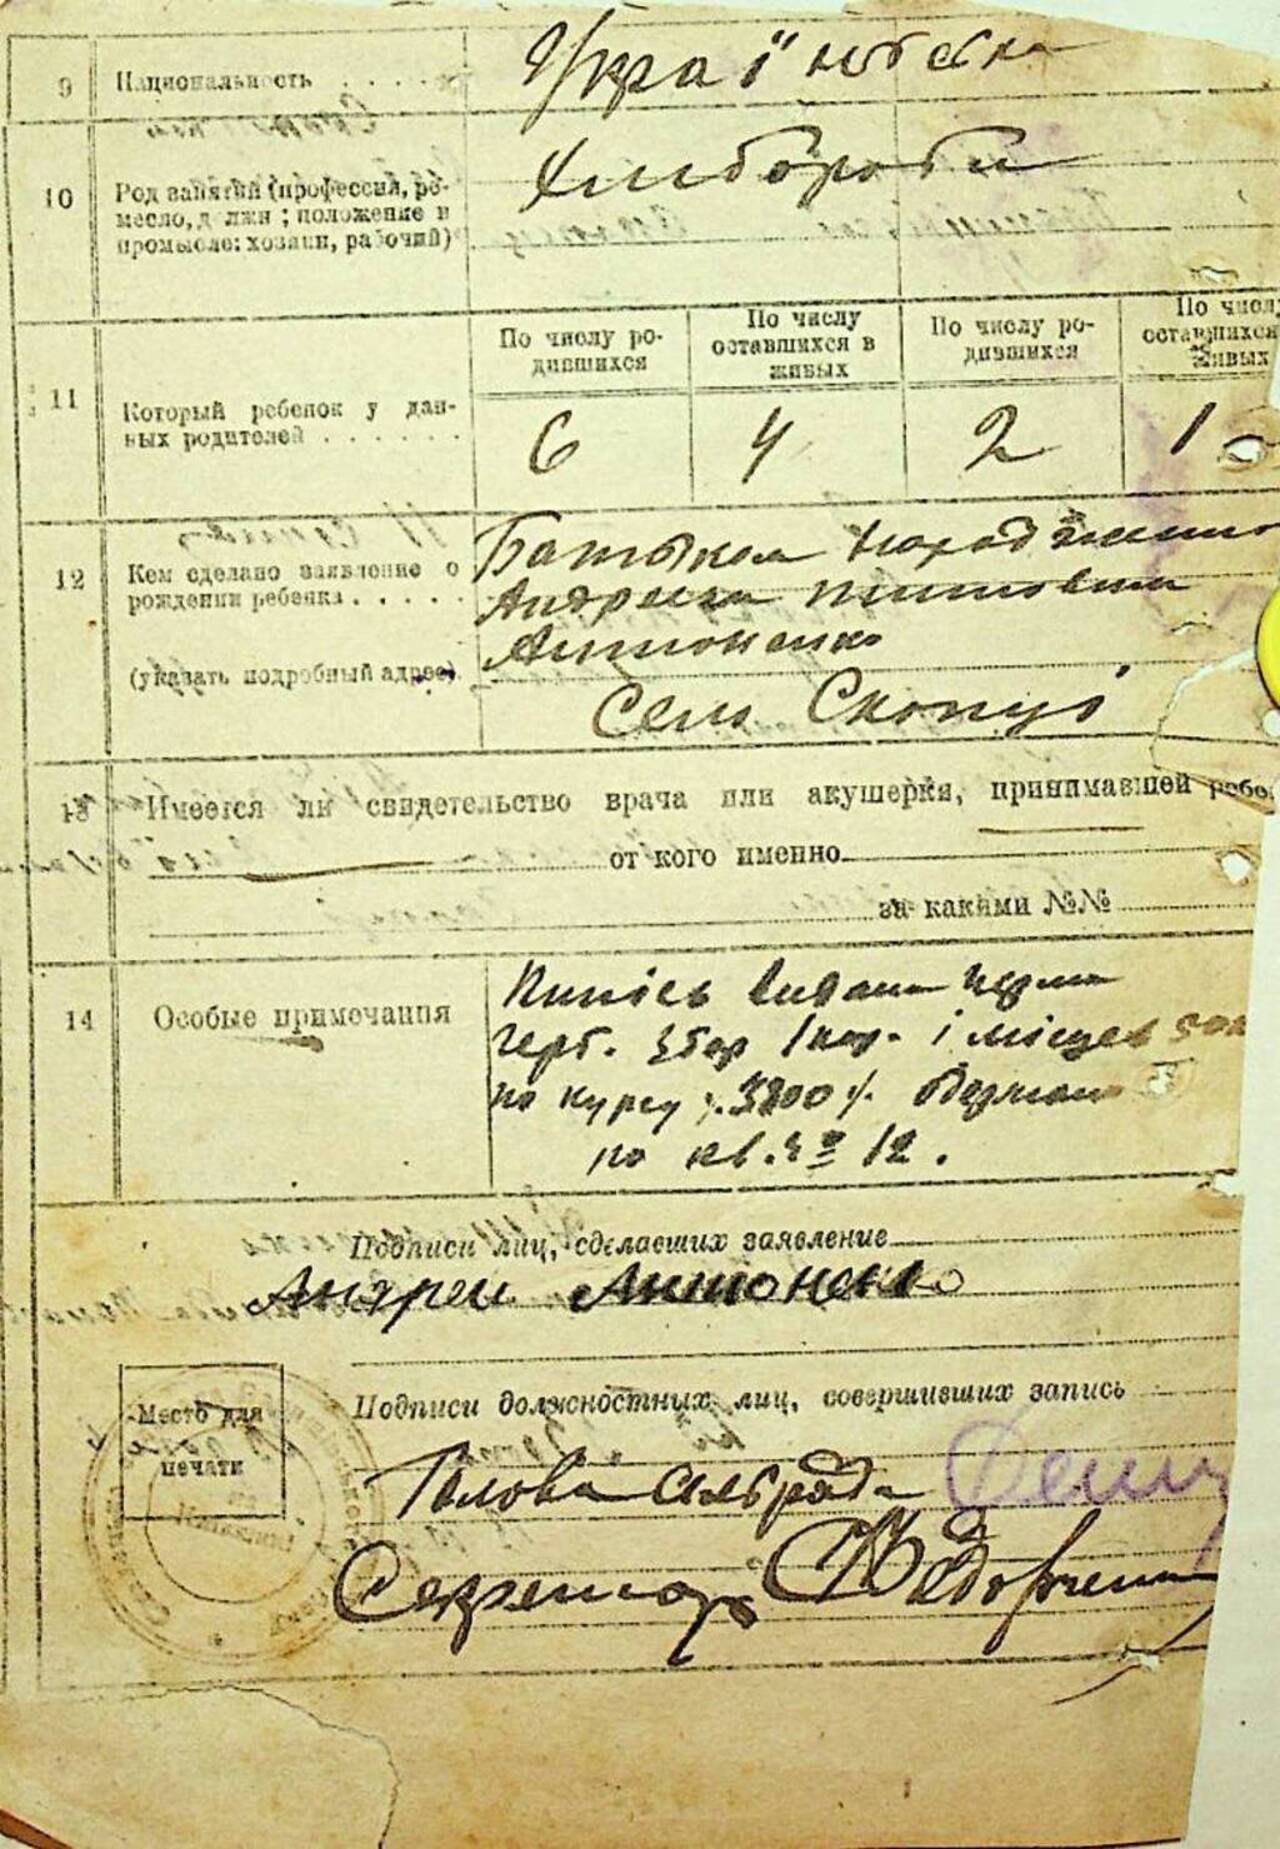 9 Национальность . . . . . Українська
10 Род занятий (профессия, ре-
месло, должн; положение в
промысле: хозяин, рабочий)
Хлібороби
По числу ро-
дившихся
По числу
оставшихся в
живых
По числу ро-
дившихся
По числу
оставшихся
живых
11 Который ребенок у дан-
ных родителей . . . . . . .
6 4 2 1
12 Кем сделано заявление о
рождении ребенка . . . . .
(указать подробный адрес)
Батьком
Андрієм
Антоненко
Село Скопці
13 Имеется ли свидетельство врача или акушерки, принимавшей ребе
от кого именно
за какими №№
14 Особые примечания
видана
герб. збор 1 кар. і місцев 50к
по курсу 3800
по кв. № 12.
Подписи лиц, сделавших заявление
Андрей Антоненко
Место для
печати
Подписи должностных лиц, совершивших запись
Голова сільради
Секретар